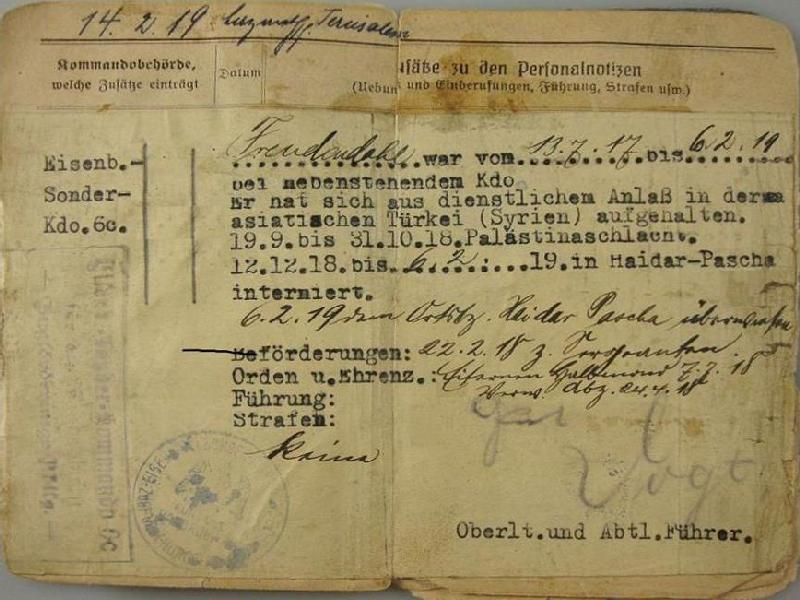 14.2.19 Jerusalem
Kommandobehörde,
welche Zusätze einträgt
Datum
usätze zu den Personalnotizen
(Uebun und Einberufungen, Führung, Strafen usw.)
Eisenb.-
Sonder-
Kdo.6c.
war vom 13.7.17 bis 6.2.19
bei nebenstehendem Kdo
Er hat sich aus dienstlichem Anlaß in der
asiatischen Türkei (Syrien) aufgehalten.
19.9.bis 31.10.18.Palästinaschlacht.
12.12.18.bis 6.2.19.in Haidar-Pascha
interniert.
6.2.19 dem Haidar Pascha überwiesen
Beförderungen: 22.2.18 z. Sergeanten.
Orden u.Ehrenz.: Eisernen Halbmond 7.2.18
Verw. Abz. 24.4.18
Führung:
Strafen:
keine
Vogt
Oberlt.und Abtl.Führer.